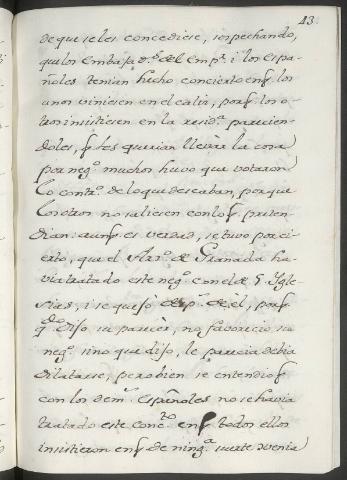 43.
de que se les concediese, sospechando,
que los Embaxa.es del Emp.r i los Espa-
ñoles tenian hecho concierto en q los
unos viniesen en el caliz, por q los o-
tros insistiesen en la resid.a parecien-
doles, q les querian llevar la cosa
por neg.o muchos huvo que votaron
lo contr.o de lo que deseaban, porque
los otros no saliesen con lo q preten-
dian: aunq es verdad, se tuvo por ci-
erto, que el Arz.o de Granada ha-
via tratado este neg.o con el de 5 Ygle-
sias, i se quejo desp.s de el, por q
q.do dijo su parecer, no favorecio su
neg.o sino que dijo, le parecia debia
dilatarse, pero bien se entendio q
con los dem.s Españoles no se havia
tratado este conc.to en q todos ellos
insistieron en q de ning.a suerte venia